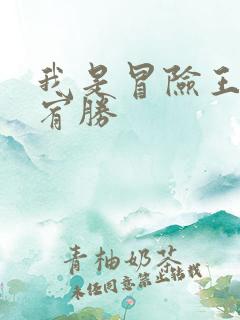 我是冒險王
宥勝
青柚奶茶
未经同意禁止转载